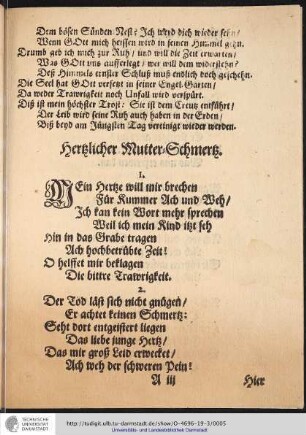 Dem bösen Sünden Nest? Ich werd dich wieder sehn/
Wenn GOtt mich heissen wird in seinen Himmel gehn.
Drumb geb ich mich zur Ruh/ und will die Zeit erwarten/
Was GOtt uns aufferlegt/ wer will dem widerstehn?
Deß Himmels ernster Schluß muß endlich doch geschehn.
Die Seel hat GOtt versetzt in seiner Engel-Garten/
Da weder Trawrigkeit noch Unfall wird verspürt.
Diß ist mein höchster Trost: Sie ist dem Creutz entführt/
Der Leib wird seine Ruh auch haben in der Erden/
Biß beyd am Jüngsten Tag vereinigt wieder werden.
Hertzlicher Mutter-Schmertz.
1.
MEin Hertze will mir brechen
Für Kummer Ach und Weh/
Ich kan kein Wort mehr sprechen
Weil ich mein Kind itz seh
Hin in das Grabe tragen
Ach hochbetrübte Zeit!
O helffet mir beklagen
Die bittre Trawrigkeit.
2.
Der Tod läst sich nicht gnügen/
Er achtet keinen Schmertz:
Seht dort entgeistert liegen
Das liebe junge Hertz/
Das mir groß Leid erwecket/
Ach weh der schweren Pein!
A iij
Hier
TECHNISCHE
UNIVERSITÄT
DARMSTADT
http://tudigit.ulb.tu-darmstadt.de/show/O-4696-19-3/0005
Universitäts- und Landesbibliothek Darmstadt